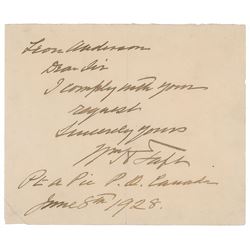 Leon Anderson
Dear Sir
I comply with your
request
Sincerely yours
Wm H Taft
Pte a Pic P.Q. Canada
June 8th 1928.